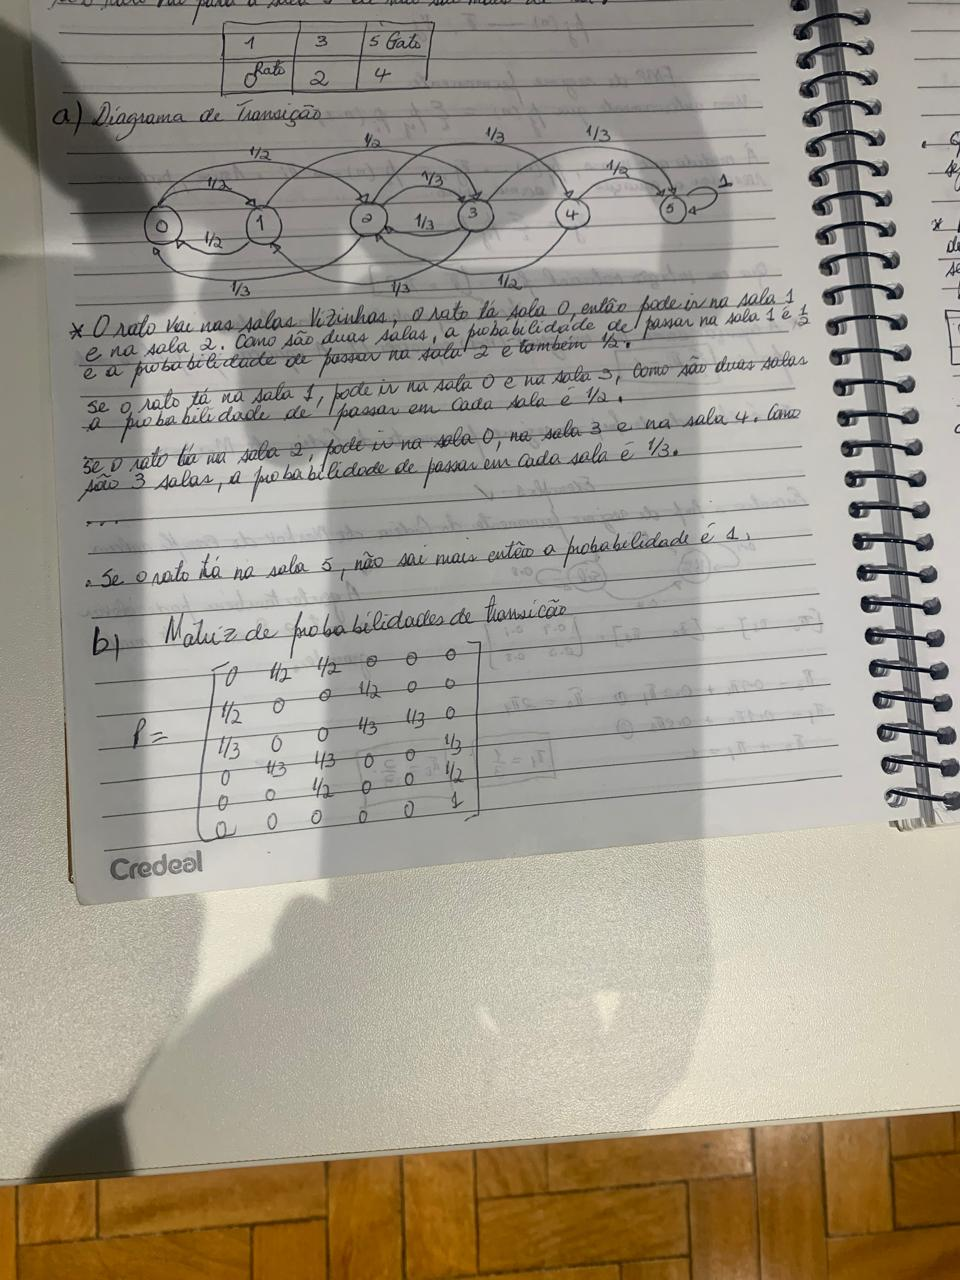 1 3 5 Gato
0 Rato 2 4
a) Diagrama de Transição
1/2 1/2 1/3 1/3
1/2 1/3 1/2 1
0 1 2 3 4 5
1/2 1/3
1/3 1/3 1/2
* O rato vai nas salas vizinhas, o rato tá sala 0, então pode ir na sala 1
e na sala 2. Como são duas salas, a probabilidade de passar na sala 1 é 1/2
e a probabilidade de passar na sala 2 é também 1/2.
se o rato tá na sala 1, pode ir na sala 0 e na sala 3, como são duas salas
a probabilidade de passar em cada sala é 1/2.
se o rato tá na sala 2, pode ir na sala 0, na sala 3 e na sala 4. Como
são 3 salas, a probabilidade de passar em cada sala é 1/3.
....
. Se o rato tá na sala 5, não sai mais então a probabilidade é 1.
b) Matriz de probabilidades de transicão
P =
0 1/2 1/2 0 0 0
1/2 0 0 1/2 0 0
1/3 0 0 1/3 1/3 0
0 1/3 1/3 0 0 1/3
0 0 1/2 0 0 1/2
0 0 0 0 0 1
Credeal